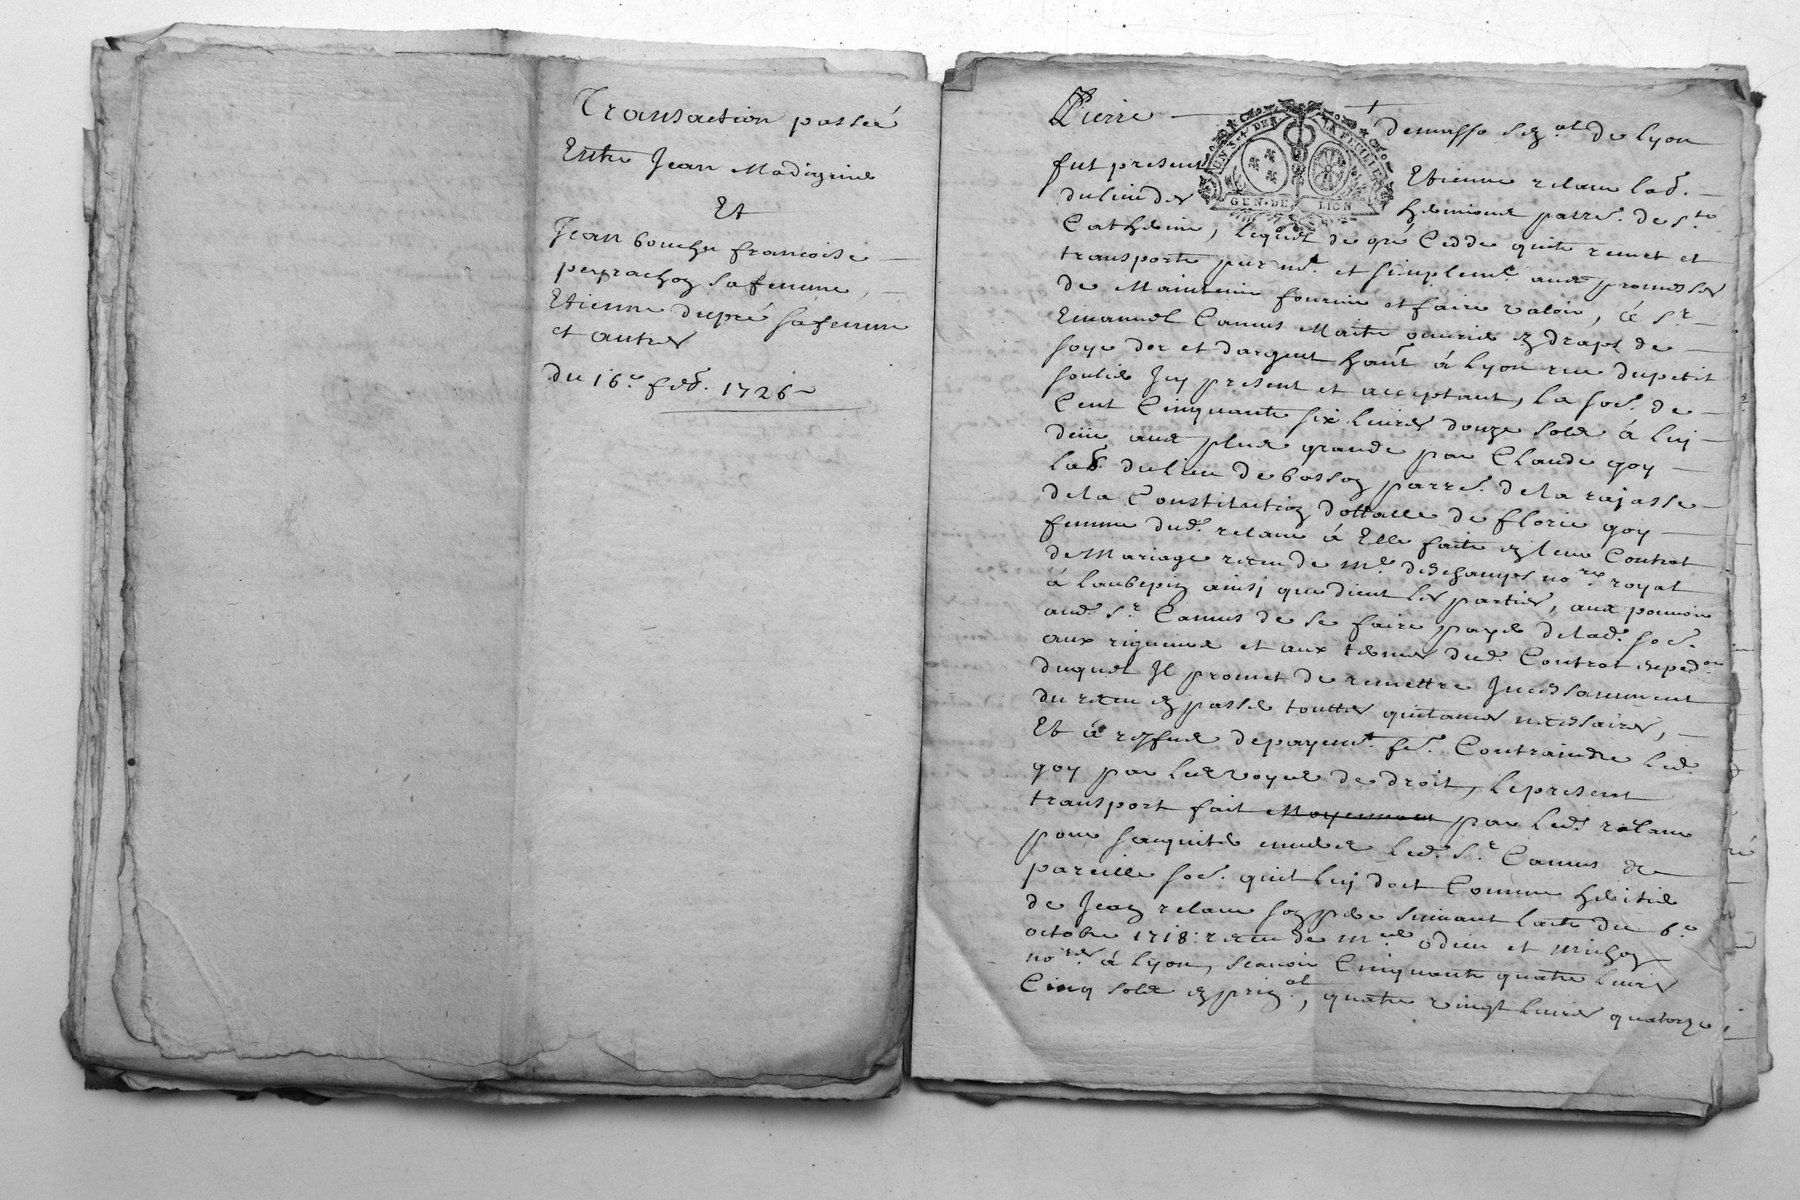 Transaction passéé
Entre Jean Madignié
Et
Jean bouchu francoise
peyrachoy sa femme,
Etienne dupré sa femme
et autres
du 16.e feb. 1726
Pierre
demasso sen.al de Lyon
UN S. 4 DEN. LA FEUILLE
GEN. DE LION
fut present Etienne relaue lab.
du lieu des parrs. de Ste
Catherine, lequel de gré Cedde quite remet et
transporte purem.t et simplem.t auec promesses
de Maintenir fournir et faire valoir, á Sr.
Emanuel Camus Maitre ouurier en draps de
soye dor et dargent hant á Lyon rue du petit
soulié Jcy present et acceptant, La So.e de
Cent Cinquante six liures douze sols á luy
deüe auec plus grande par Claude goy
lab. du lieu de bosson parrs. de la rajasse
de la Constitution dottalle de florie goy
femme dud. relaue á Elle faite en leur Contrat
de Mariage receu de me. deschamps nore. royal
á Laubepin ainsj que dient les parties, auec pouuoir
aud. Sr. Camus de se faire payer de lad. so.e
aux rigueurs et aux termes dud. Contrat expedon.
duquel Jl promet de remettre Jncessamment
du receu en passer touttes quitances necessaires,
Et á reffus de payem.t fe. Contraindre led.
goy par les voyes de droit, le present
transport fait Moyennant par led. relaue
pour sacquiter enuers led. Sr. Camus de
pareille so.e quil luy doit Comme heritier
de Jean relaue son pere suiuant lacte du 6.e
octobre 1718: receu de mes. odieu et michon
nores. á Lyon, scauoir Cinquante quatre liures
Cinq sols en prin.al, quatre vingt liures quatorze